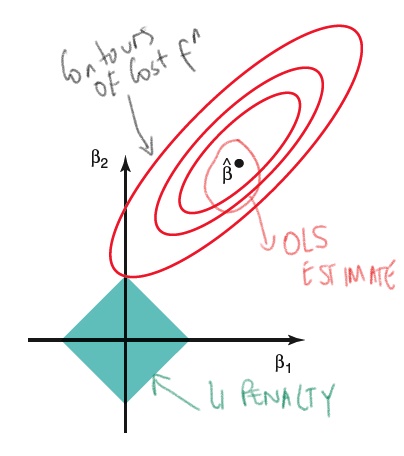 Contours
OF Cost fⁿ
β₂
β̂
OLS
ESTIMATE
β₁
L1 PENALTY